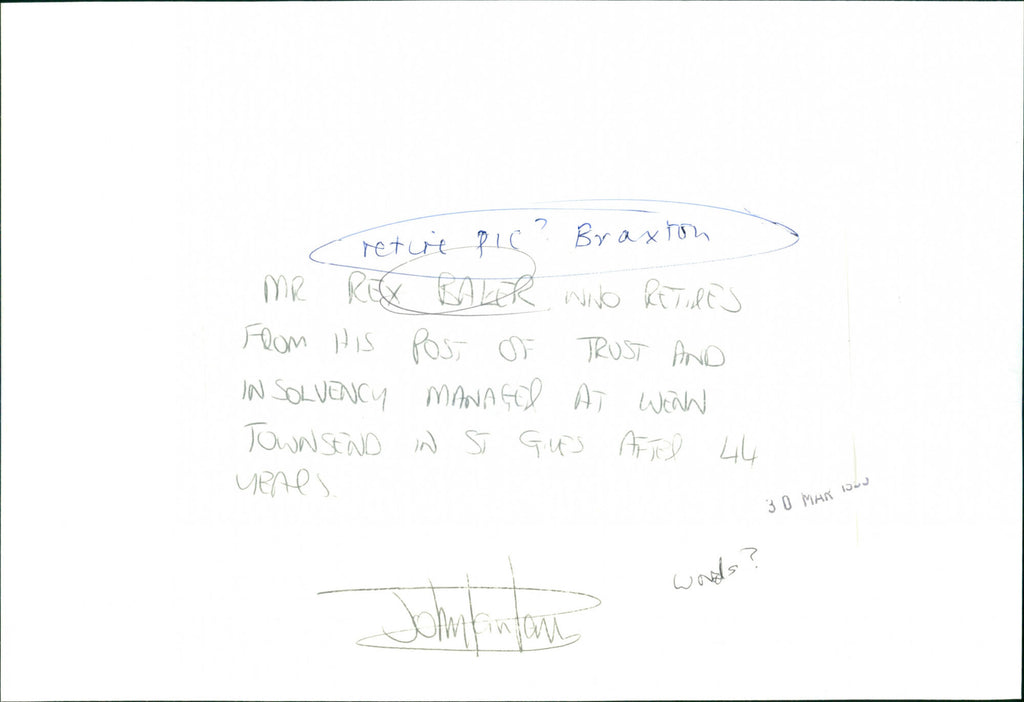 retire PIC? Braxton
MR REX BAKER WHO RETIRES
FROM HIS POST OF TRUST AND
INSOLVENCY MANAGER AT WENN
TOWNSEND IN ST GILES AFTER 44
YEARS.
30 MAR
words?
John